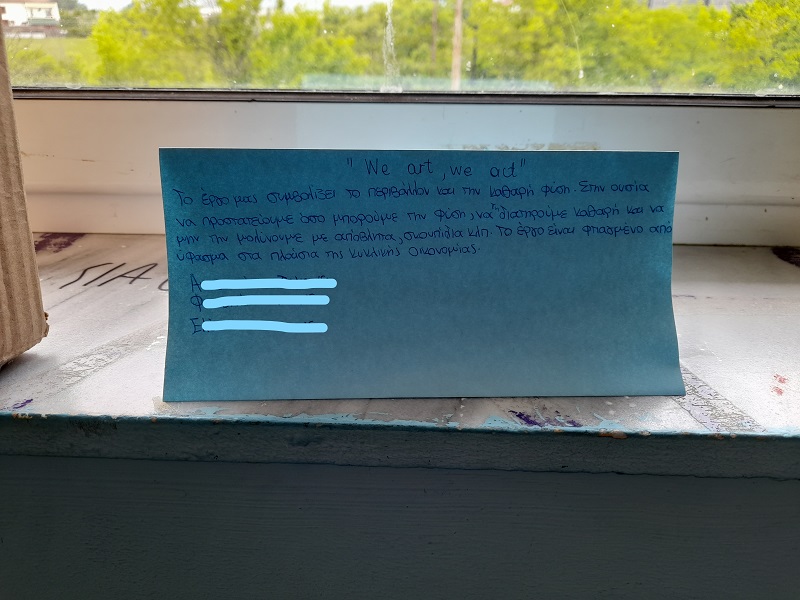 "We art, we act"
Το έργο μας συμβολίζει το περιβάλλον και την καθαρή φύση. Στην ουσία
να προστατεύουμε όσο μπορούμε την φύση, να τη διατηρούμε καθαρή και να
μην την μολύνουμε με απόβλητα, σκουπίδια κλπ. Το έργο είναι φτιαγμένο από
ύφασμα στα πλαίσια της κυκλικής οικονομίας.
Α
Φ
Ε